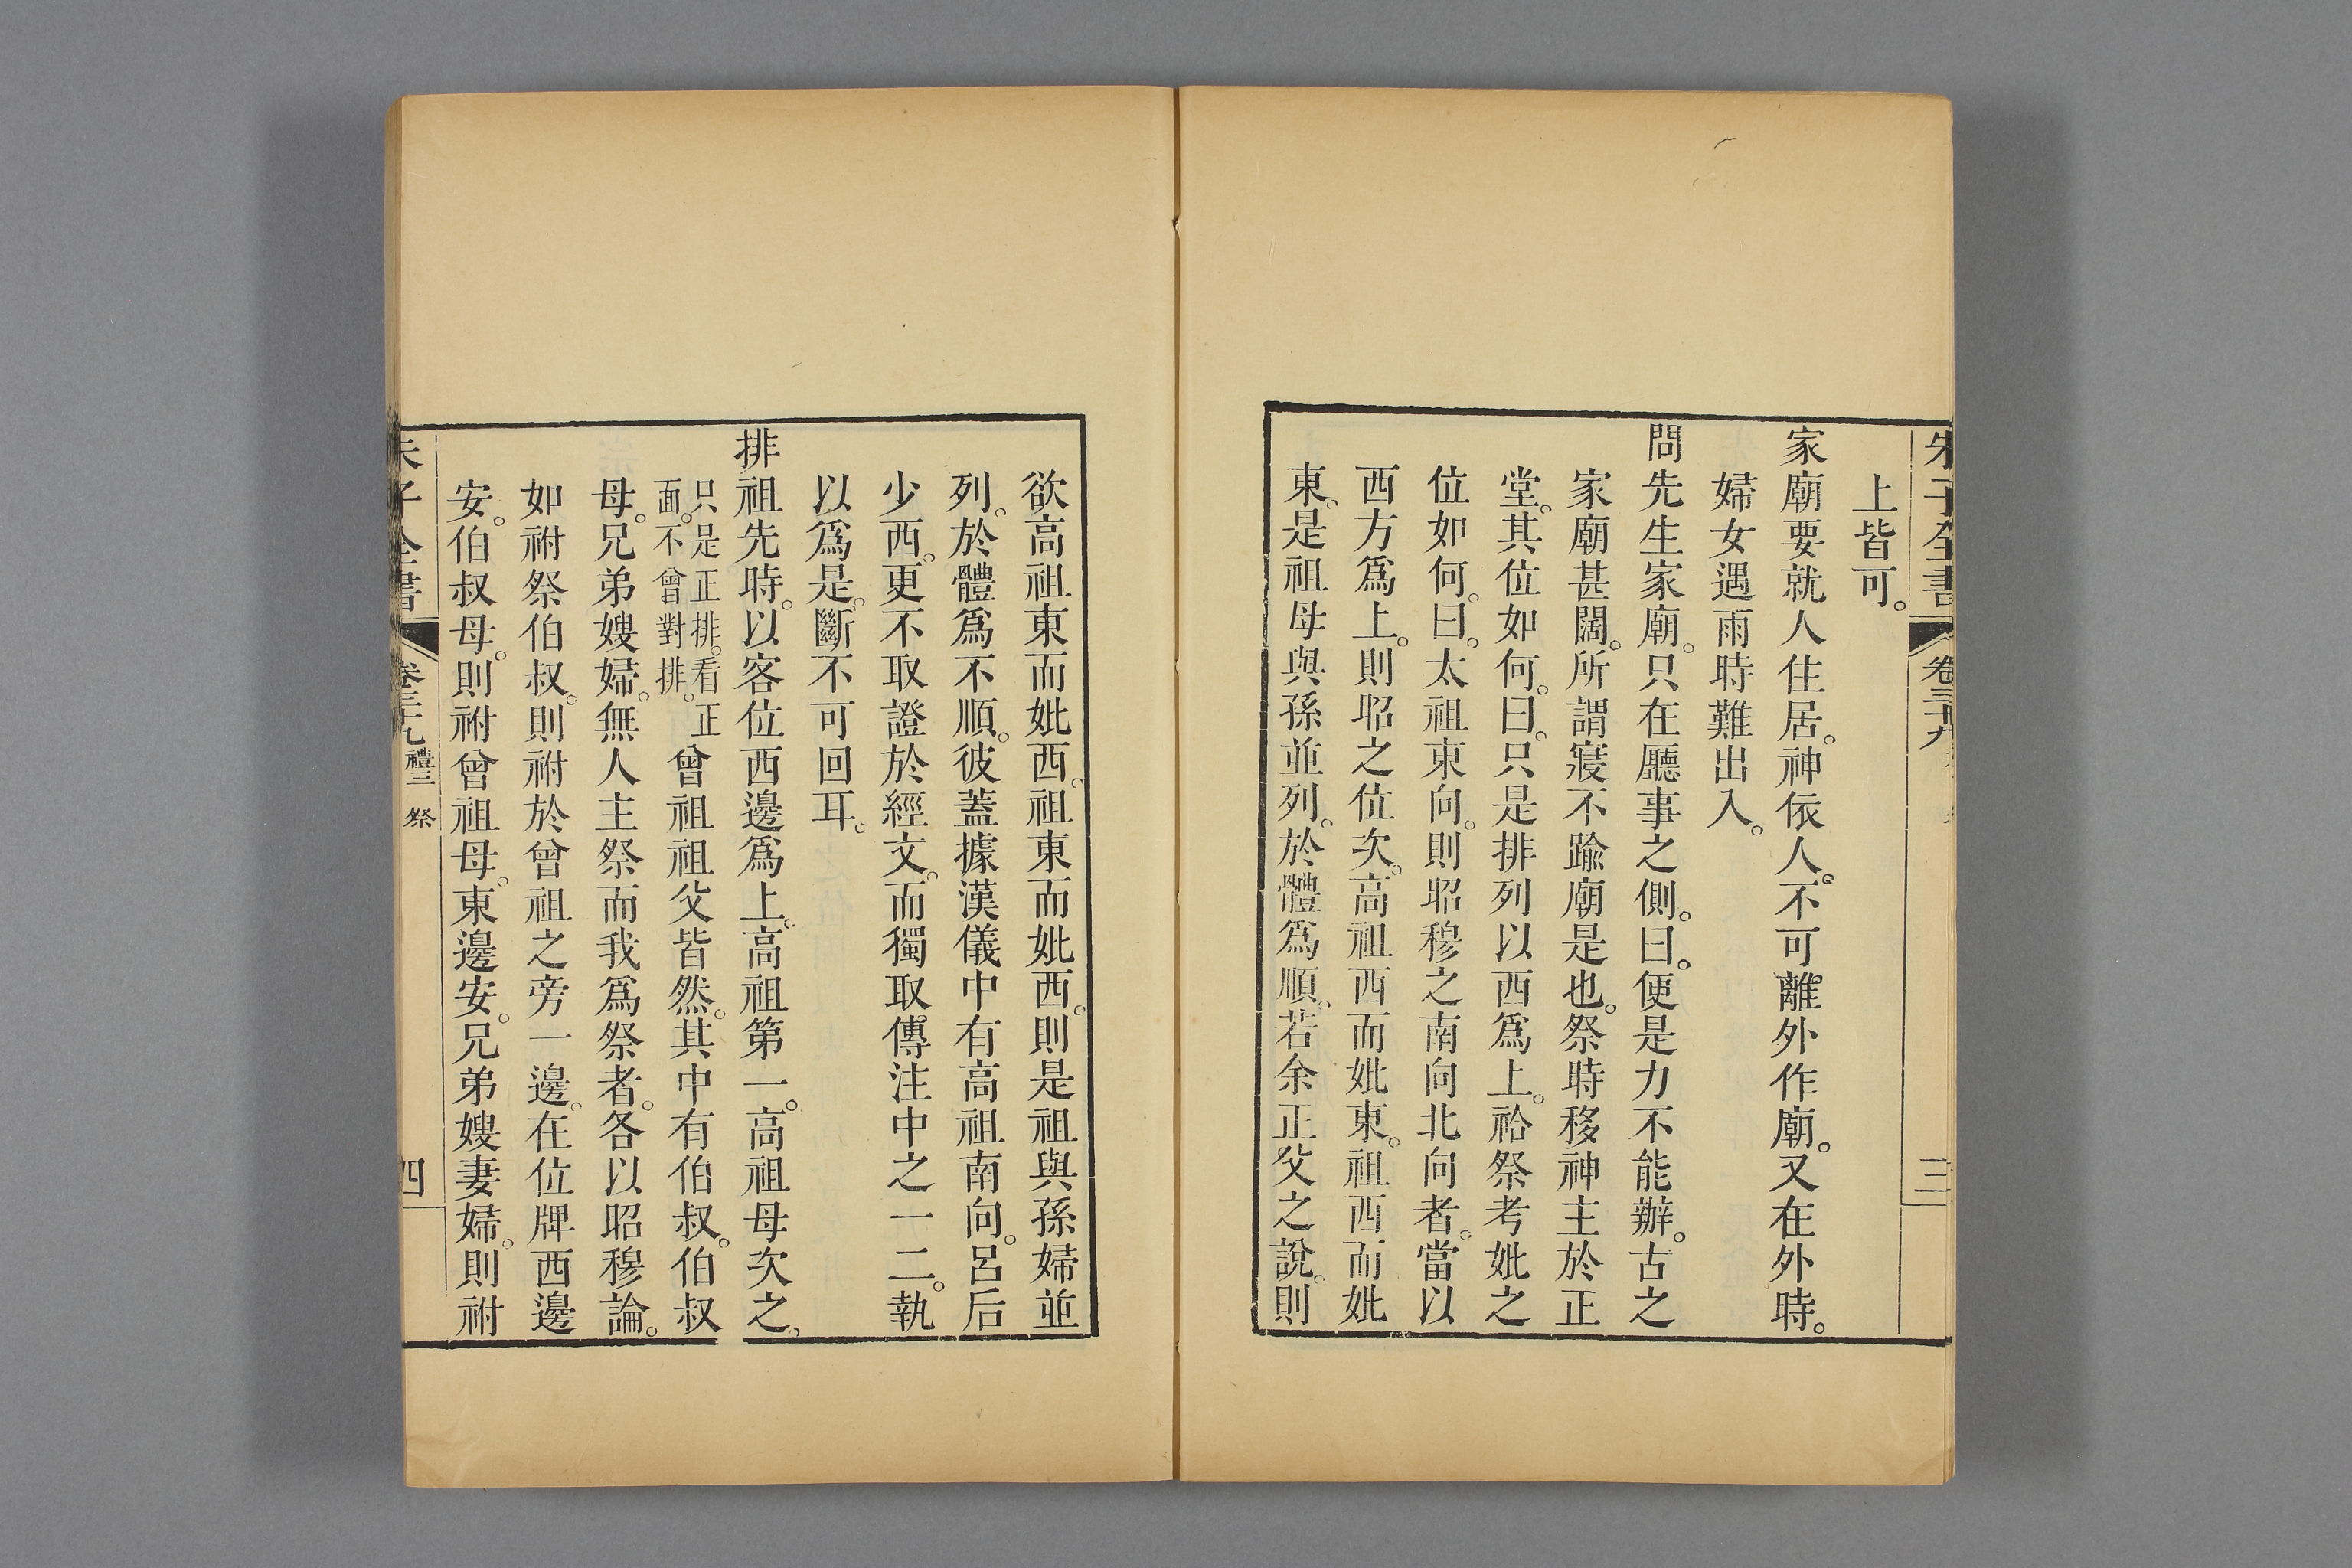 朱子全書 卷三十九 三
上皆可。
家廟要就人住居。神依人。不可離外作廟。又在外時。
婦女遇雨時難出入。
問先生家廟。只在廳事之側。曰。便是力不能辦。古之
家廟甚闊。所謂寢不踰廟是也。祭時移神主於正
堂。其位如何。曰。只是排列以西爲上。祫祭考妣之
位如何。曰。太祖東向。則昭穆之南向北向者。當以
西方爲上。則昭之位次。高祖西而妣東。祖西而妣
東。是祖母與孫並列。於體爲順。若余正父之說。則
欲高祖東而妣西。祖東而妣西。則是祖與孫婦並
列。於體爲不順。彼蓋據漢儀中有高祖南向。呂后
少西。更不取證於經文。而獨取傳注中之一二。執
以爲是。斷不可回耳。
排祖先時。以客位西邊爲上。高祖第一。高祖母次之。
只是正排。看正面。不曾對排。曾祖祖父皆然。其中有伯叔。伯叔
母。兄弟嫂婦。無人主祭而我爲祭者。各以昭穆論。
如祔祭伯叔。則祔於曾祖之旁一邊。在位牌西邊
安。伯叔母。則祔曾祖母。東邊安。兄弟嫂妻婦。則祔
朱子全書 卷三十九 禮三 祭 四